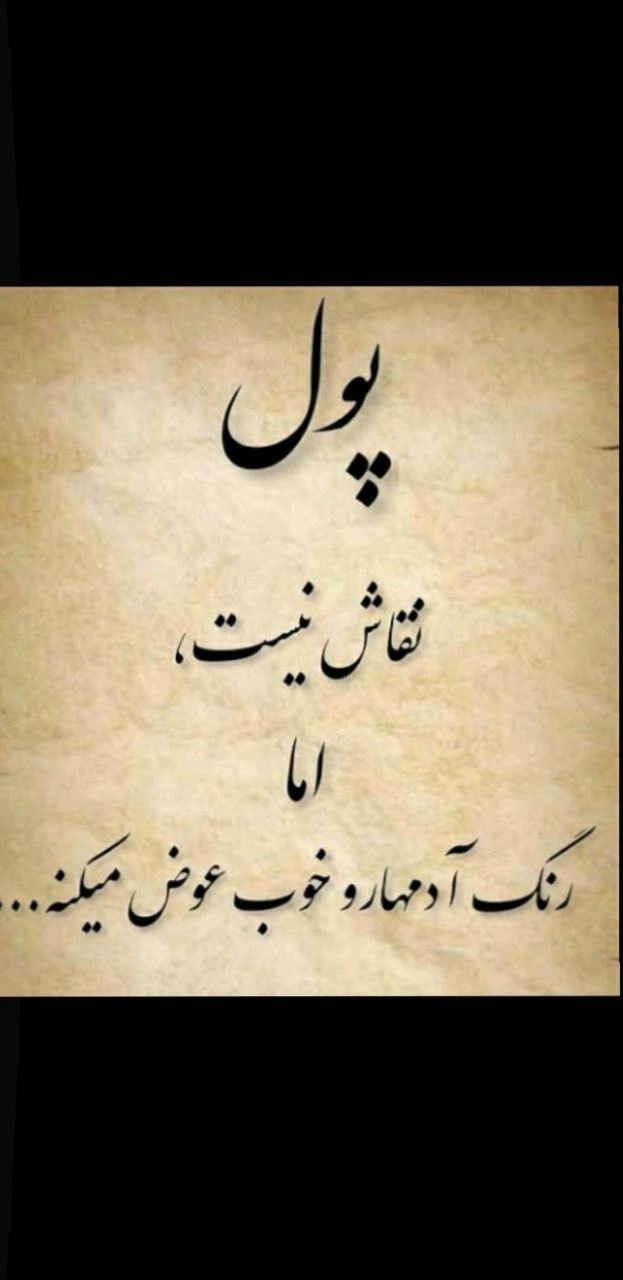 پول
نقاش نیست،
اما
رنگ آدمهارو خوب عوض میکنه...